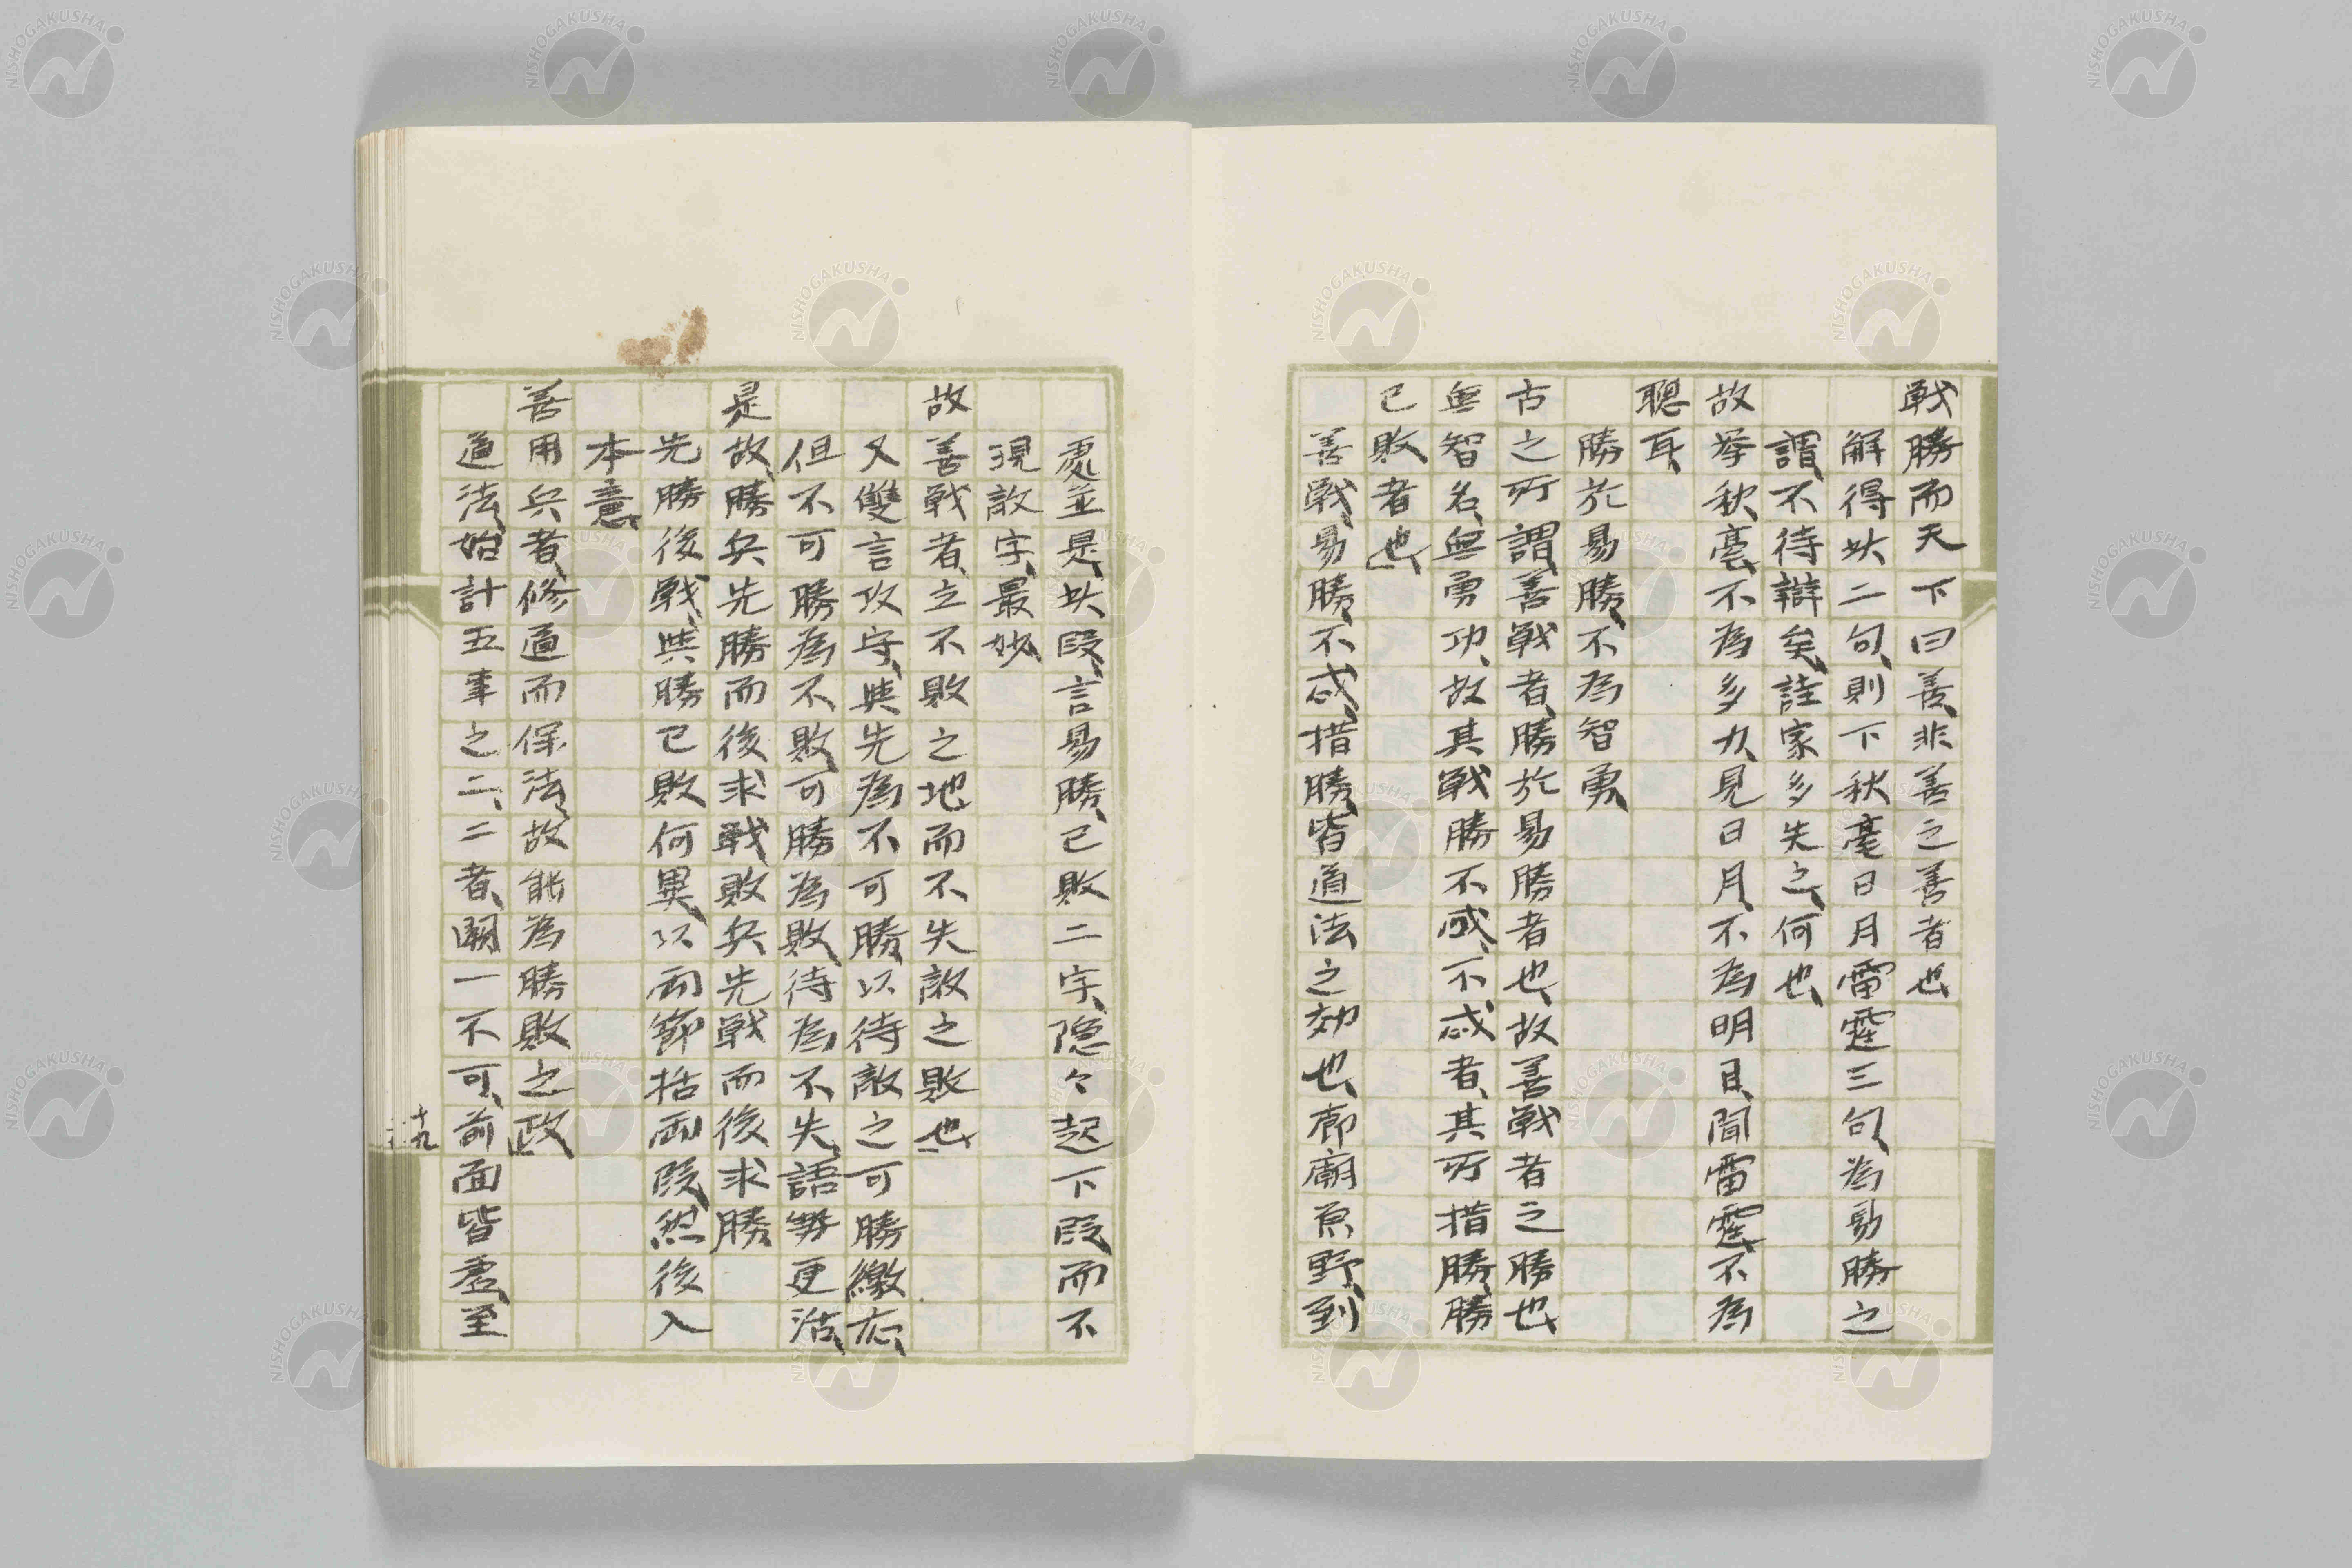 戦勝而天下曰善、非善之善者也
解得此二句、則下秋毫日月雷霆三句、為易勝之
譜、不待辯矣、註家多失之、何也、
故挙秋毫、不為多力、見日月、不為明目、聞雷霆、不為
聰耳、
勝於易勝、不為智勇、
古之所謂善戦者、勝於易勝者也、故善戦者之勝也
無智名、無勇功、故其戦勝不忒、不忒者、其所措勝、勝
已敗者也、
善戦、易勝、不忒、措勝、皆道法之効也、廊廟原野、到
處並是、此段、言易勝、已敗二字、隠々起下段、而不
現敵字、最妙、
故善戦者、立不敗之地、而不失敵之敗也、
又雙言攻守、與先為不可勝、以待敵之可勝繳応、
但不可勝為不敗、可勝為敗、待為不失、語勢更活、
是故、勝兵先勝而後求戦、敗兵先戦而後求勝、
先勝後戦、與勝已敗何異、以両節括両段、然後入
本意、
善用兵者、修道而保法、故能為勝敗之政、
道法、始計五事之二、二者、闕一不可、前面皆虚、至
十九